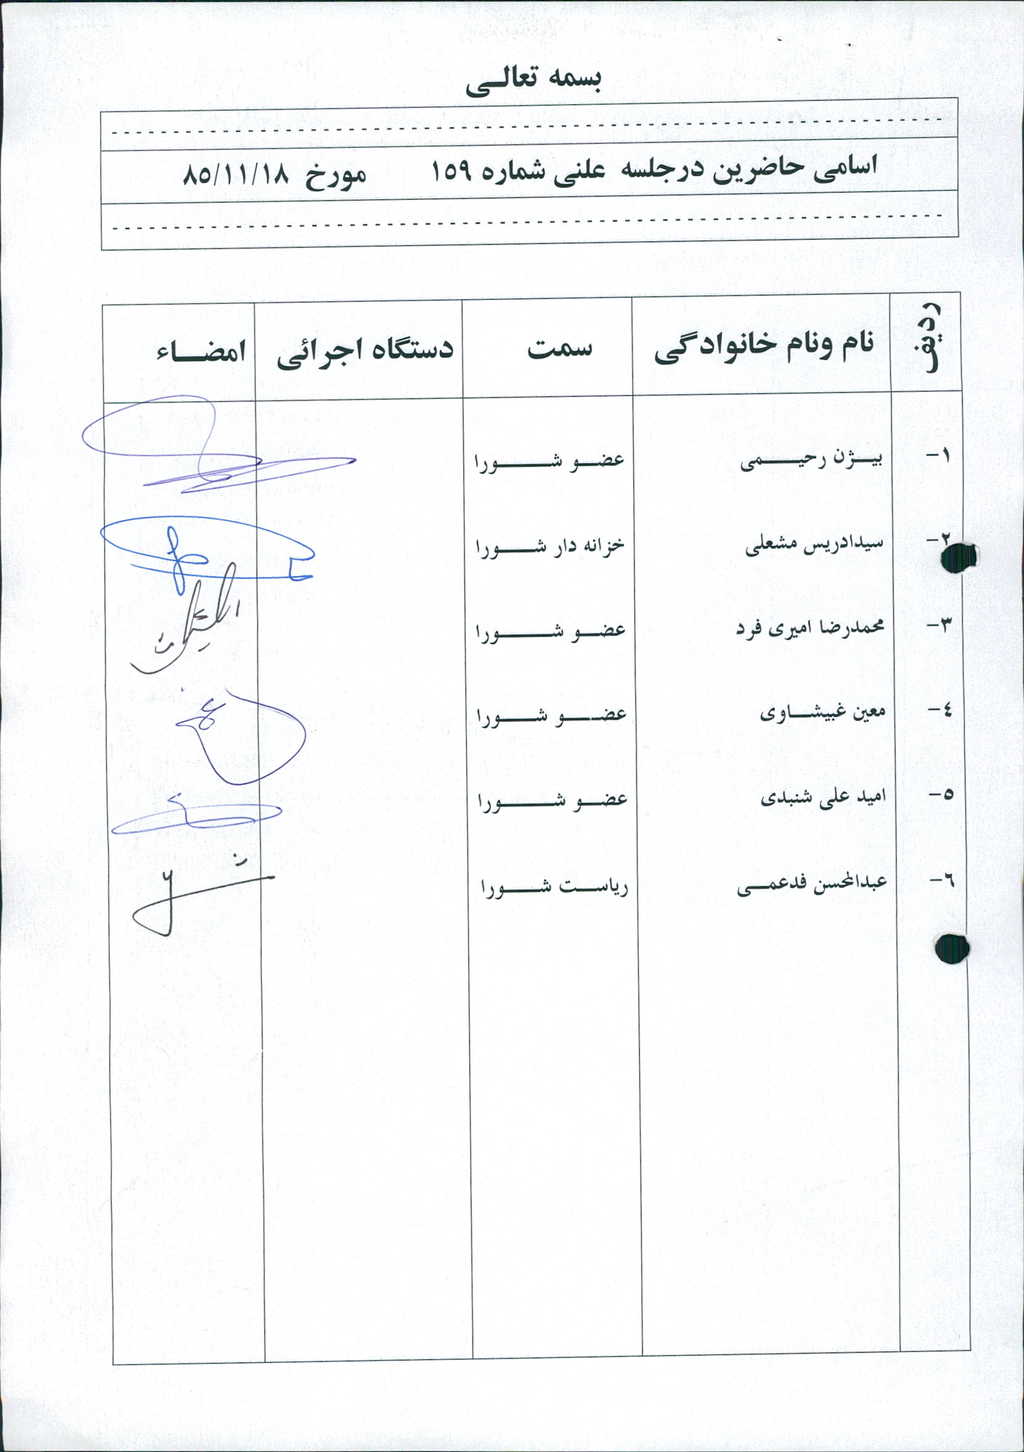 بسمه تعالی
اسامی حاضرین درجلسه علنی شماره ۱۵۹ مورخ ۸۵/۱۱/۱۸
ردیف نام ونام خانوادگی سمت دستگاه اجرائی امضاء
۱- بیژن رحیمی عضو شورا
۲- سیدادریس مشعلی خزانه دار شورا
۳- محمدرضا امیری فرد عضو شورا
۴- معین غبیشاوی عضو شورا
۵- امید علی شنبدی عضو شورا
۶- عبدالمحسن فدعمی ریاست شورا